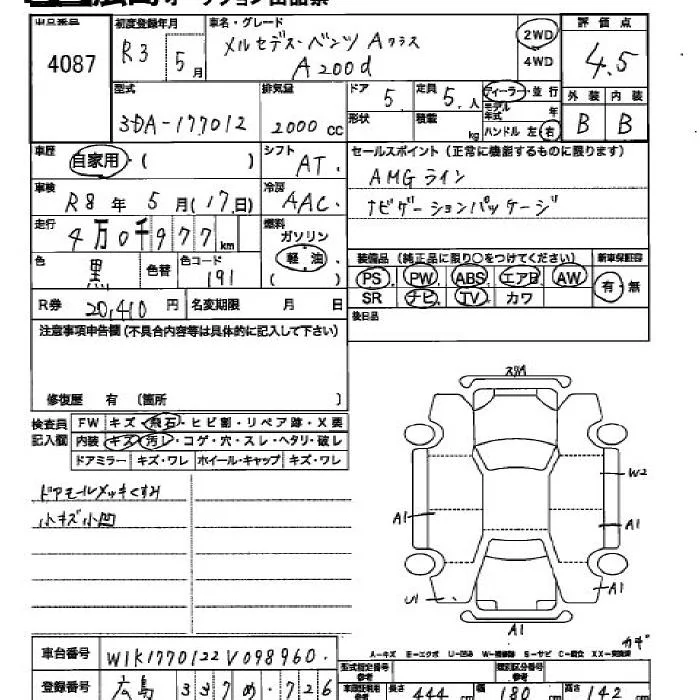 出品番号 4087
初度登録年月 R3 5月
車名・グレード メルセデス・ベンツ Aクラス
A200d
2WD
4WD
評価点
4.5
型式 3DA-177012
排気量 2000 cc
ドア 5
定員 5人
形状
積載 kg
ディーラー・並行
モデル年式 年
ハンドル 左・右
外装 内装
B B
車歴 自家用・( )
シフト AT
セールスポイント(正常に機能するものに限ります)
AMGライン
ナビゲーションパッケージ
車検 R8年 5月(17日)
冷房 AAC
走行 4万0千977km
燃料 ガソリン
軽油
( )
色 黒
色替
色コード 191
装備品(純正品に限り○をつけてください)
新車保証書
PS PW ABS エアB AW
SR ナビ TV カワ
有・無
R券 20,410円
名変期限 月 日
後日品
注意事項申告欄(不具合内容等は具体的に記入して下さい)
修復歴 有 〔箇所 〕
検査員記入欄
FW キズ・飛石・ヒビ割・リペア跡・X要
内装 キズ・汚レ・コゲ・穴・スレ・ヘタリ・破レ
ドアミラー キズ・ワレ ホイール・キャップ キズ・ワレ
ドアモールメッキくすみ
小キズ小凹
W2
A1
A1
U1
A1
A1
A-キズ E-エクボ U-凹み W-補修跡 S-サビ C-腐食 XX-交換済
車台番号 W1K1770122V098960
登録番号 広島 337 め 726
型式指定番号 参考
類別区分番号 参考
長さ 444 cm 幅 180 cm 高さ 142 cm